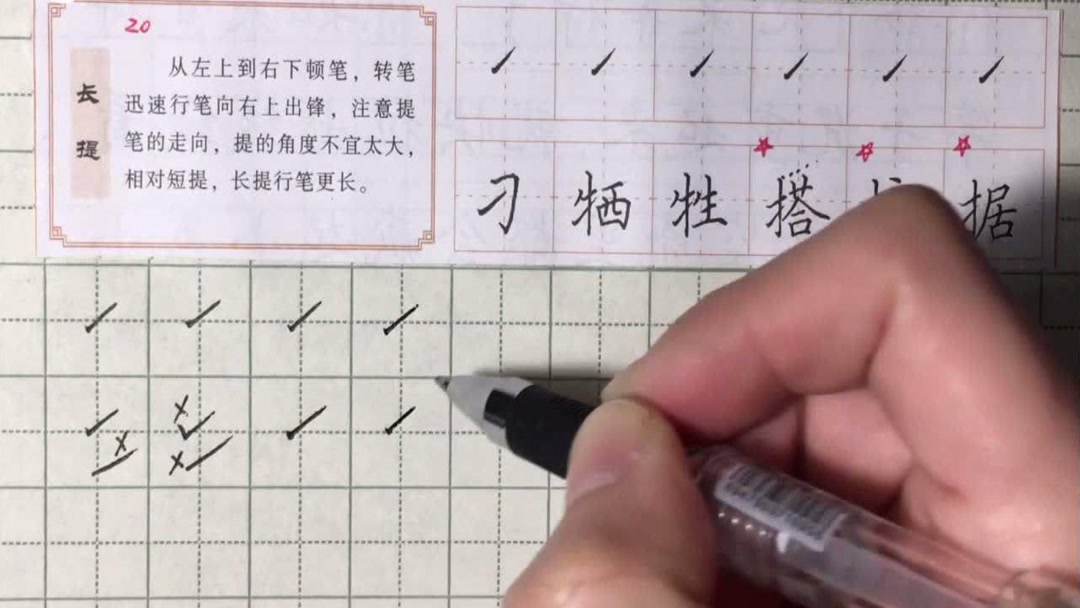 20
长提
从左上到右下顿笔，转笔
迅速行笔向右上出锋，注意提
笔的走向，提的角度不宜太大，
相对短提，长提行笔更长。
刁 牺 牲 搭 据